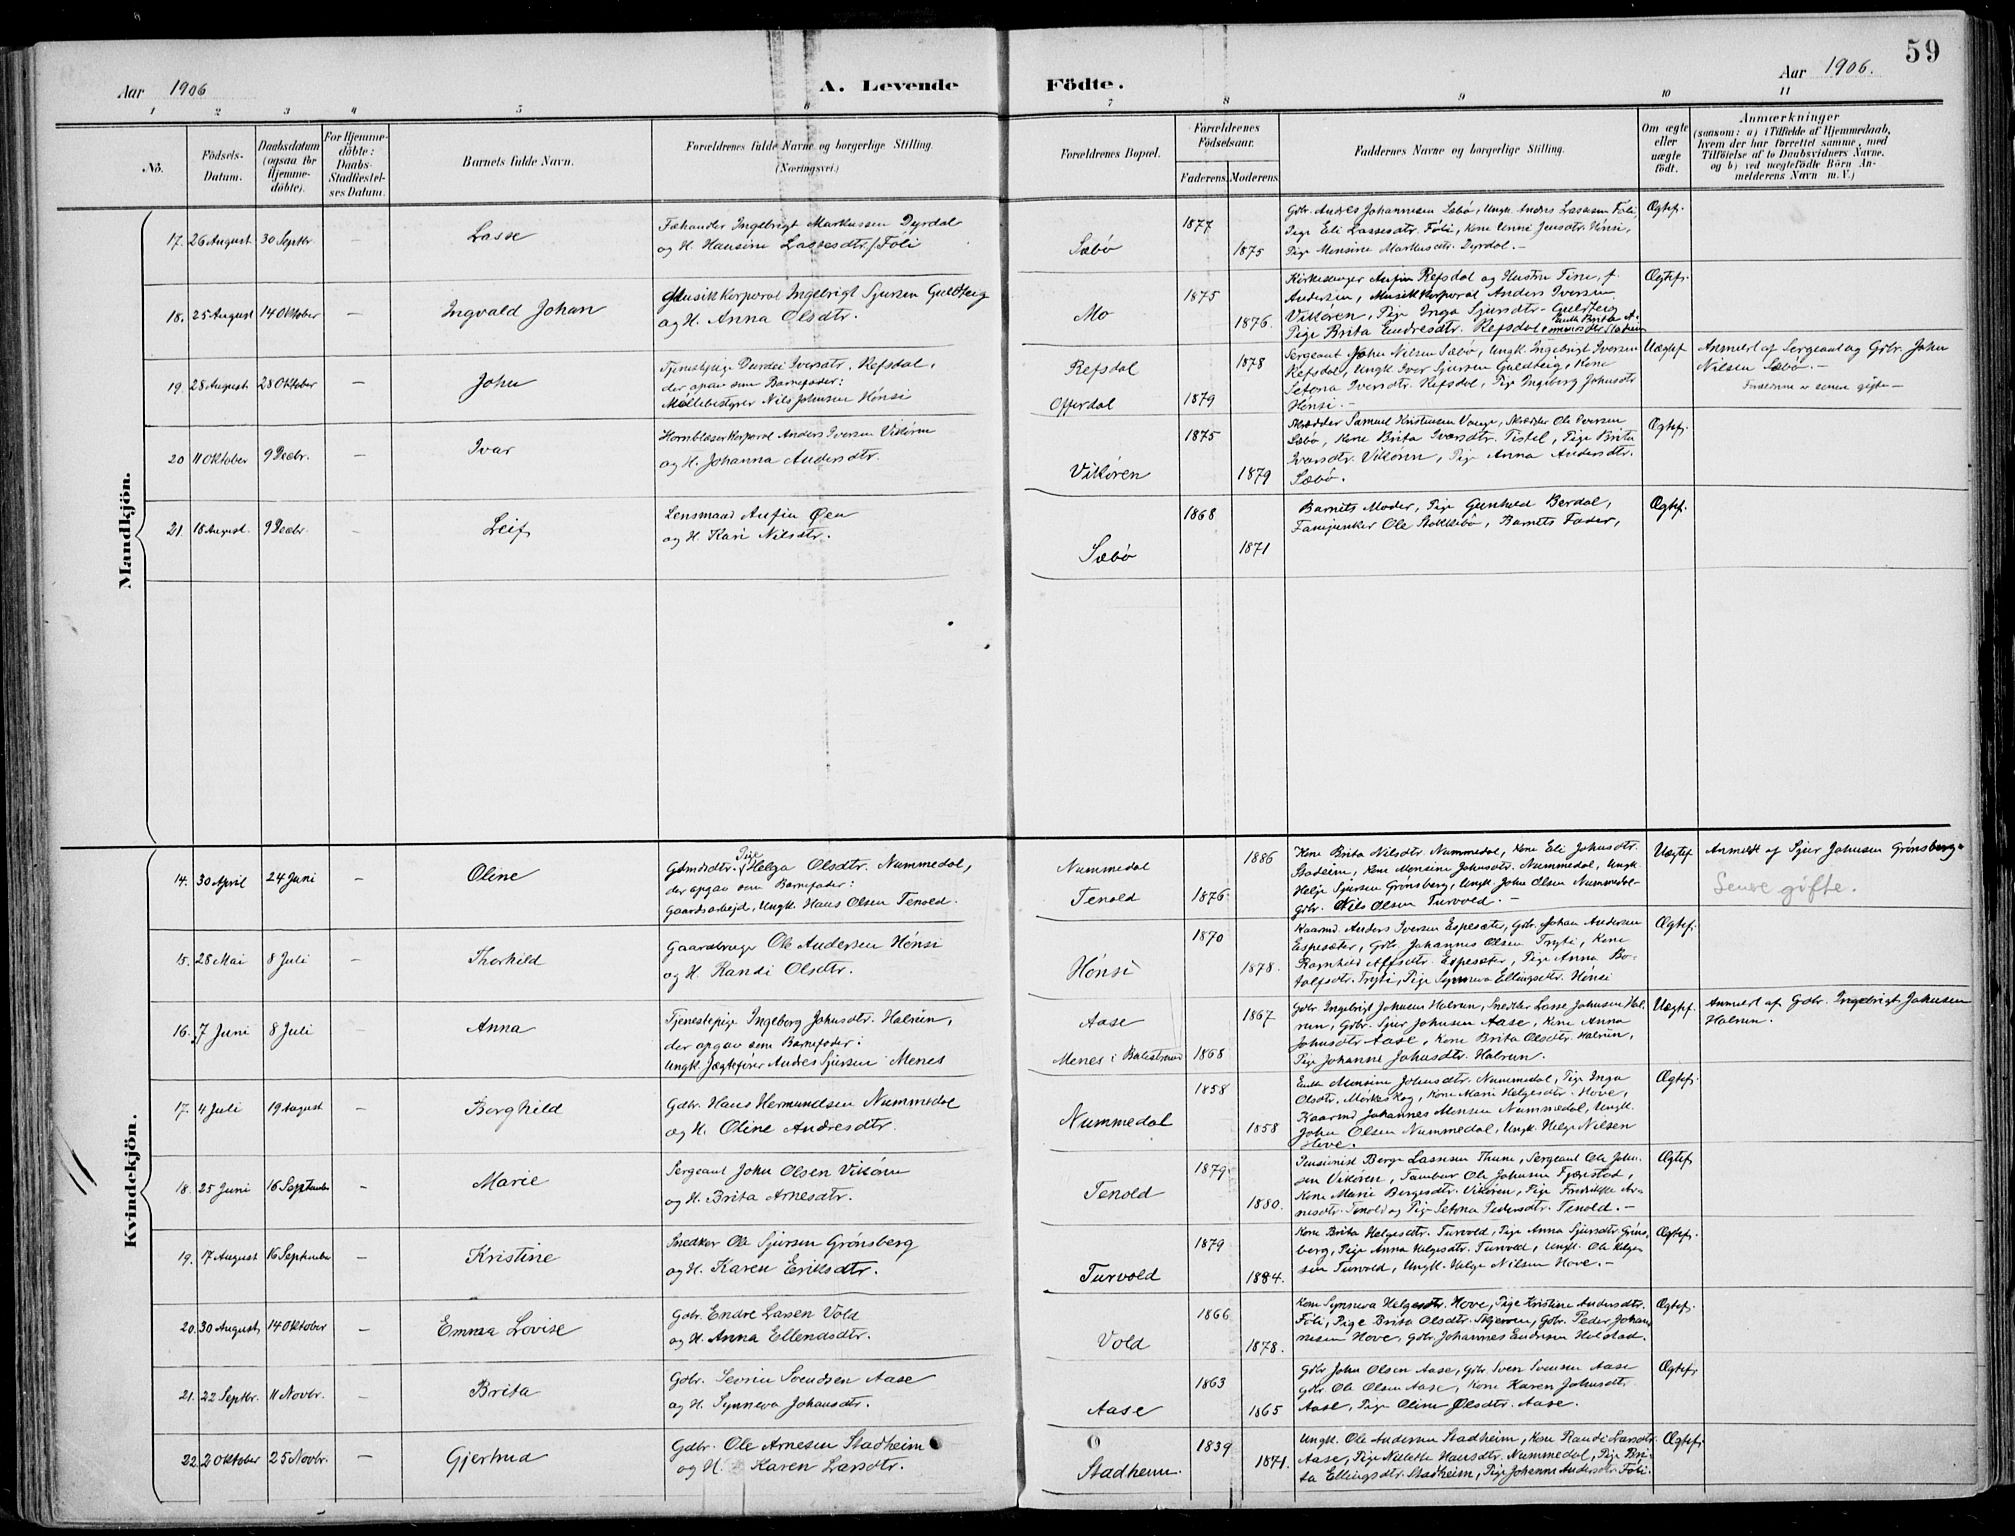 59
Aar 1906
A. Levende Födte.
Aar 1906.
1 2 3 4 5 6 7 8 9 10 11
No.
Födsels-
Datum.
Daabsdatum
(ogsaa for
Hjemme-
döbte).
For Hjemme-
döbte:
Daabs-
Stadfæstel-
ses Datum.
Barnets fulde Navn.
Forældrenes fulde Navne og borgerlige Stilling.
(Næringsvei.)
Forældrenes Bopæl.
Forældrenes
Födselsaar.
Faderens. Moderens.
Faddernes Navne og borgerlige Stilling.
Om ægte
eller
uægte
födt.
Anmærkninger
(saasom: a) i Tilfælde af Hjemmedaab,
hvem der har forrettet samme, med
Tilföielse af to Daabsvidners Navne.
og b) ved uægtefödte Börn An-
melderens Navn m. V.)
Mandkjön.
17. 26 August 30 Septbr. – Lasse
Ingebrigt Markussen Dyrdal
og H. Hansine Lassesdtr. Føli
Sæbø
1877
1875
Gdbr. Andres Johannesen Sæbø, Ungk. Andres Lassesen Føli,
Pige Eli Lassesdtr. Føli, Kone Unni Jensdtr. Hønsi,
Pige Monsine Markusdtr. Dyrdal. –
Ægtef.
18. 25 August 14 Oktober – Ingvald Johan
Musikkorporal Ingebrigt Sjursen Guldberg
og H. Anna Olsdtr.
Mo
1875
1876.
Kirkesanger Anfin Refsdal og Hustru Tine, f.
Andersen, Musikkorporal Anders Iversen
Vikören, Pige Inga Sjursdtr. Guldberg
Pige Brita Endresdtr. Refsdal
Ægtef.
19. 28 August 28 Oktober – John
Tjenestepige Durdei Iversdtr. Refsdal,
der opgav som Barnefader:
Møllebestyrer Nils Johnsen Hønsi
Refsdal
Offerdal
1878
1879
Sergeant John Nilsen Sæbø, Ungk. Ingebrigt Iversen
Refsdal, Ungk. Iver Sjursen Guldberg, Kone
Setona Iversdtr. Refsdal, Pige Ingeborg Johnsdtr
Hønsi. –
Uægtef
Anmeldt af Sergeant og Gdbr. John
Nilsen Sæbø. –
Forældrene er senere gifte –
20 11 Oktober 9 Decbr. – Ivar
Hornblæserkorporal Anders Iversen Vikören
og H. Johanna Andersdtr.
Vikören
1875
1879
Skrædder Samuel Kristensen Vange, Skrædder Ole Iversen
Sæbø, Kone Brita Ivarsdtr. Tistel, Pige Brita
Ivarsdtr. Vikören, Pige Anna Andersdtr.
Sæbø.
Ægtef.
21. 18 August. 9 Decbr – Leif
Lensmand Anfin Øen
og H. Kari Nilsdtr.
Sæbø
1868
1871
Barnets Moder, Pige Gunhild Berdal,
Fanejunker Ole Stokkebø, Barnets Fader,
Ægtef.
Kvindekjön.
14. 30 April 24 Juni – Oline
Pige
Gdmdsdtr. Helga Olsdtr. Nummedal,
der opgav som Barnefader:
Gaardsarbejd, Ungk. Hans Olsen Tenold.
Nummedal
Tenold
1886
1876
Kone Brita Nilsdtr Nummedal, Kone Eli Johnsdtr.
Stadeim, Kone Monsine Johnsdtr. Nummedal, Ungk.
Helge Sjursen Grønsberg, Ungk. John Olsen Nummedal
Gdbr. Nils Olsen Turvold. –
Uægtef
Anmeldt af Sjur Johnsen Grønsberg
Senere gifte.
15. 28 Mai 8 Juli – Thorhild
Gaardbruger Ole Andersen Hønsi
og H. Randi Olsdtr.
Hønsi
1870
1878.
Kaarmd. Anders Iversen Espesæter, Gdbr. Johan Andersen
Espesæter, Gdbr. Johannes Olsen Tryti, Kone
Ragnhild Espesæter, Pige Anna Bo-
tolfsdtr. Tryti, Pige Synneva Ellingsdtr. Hønsi
Ægtef.
16. 7 Juni 8 Juli – Anna
Tjenestepige Ingeborg Johnsdtr. Halrün,
der opgav som Barnefader:
Ungk. Jægtefører Andres Sjursen Menes
Aase
Menes i Balestrand
1867
1868
Gdbr Ingebrigt Johnsen Halrün, Snedker Lasse Johnsen Hal-
run, Gdbr. Sjur Johnsen Aase, Kone Anna
Johnsdtr Aase, Kone Brita Olsdtr. Halrün,
Pige Johanne Johnsdtr. Halrun.
Uægtef.
Anmeldt af Gdbr. Ingebrigt Johnsen
Halrun.
17. 4 Juli 19 August – Borghild
Gdbr. Hans Hermundsen Nummedal
og H. Oline Andresdtr.
Nummedal
1858
1858
Enke Monsine Johnsdtr. Nummedal, Pige Inga
Olsdtr. Mørkeskog, Kone Mari Helgesdtr. Hove,
Kaarmd Johannes Monsen Nummedal, Ungk.
John Olsen Nummedal, Ungk. Helge Nilsen
Hove.
Ægtef.
18. 25 Juni 16 September – Marie
Sergeant John Olsen Vikören
og H. Brita Arnesdtr.
Tenold
1879
1880.
Pensionist Berge Lassesen Thune, Sergeant Ole John-
sen Vikören, Tambur Ole Johnsen Fjærestad,
Kone Marie Bergesdtr. Vikören, Pige Fredrikke Ar-
nesdtr. Tenold og Pige Setona Pedersdtr. Tenold. –
Ægtef
19. 7 August 16 September – Kristine
Snedker Ole Sjursen Grønsberg
og H. Karen Eriksdtr.
Turvold
1879
1884.
Kone Brita Helgesdtr. Turvold, Pige Anna Sjursdtr. Gröns-
berg, Pige Anna Helgesdtr. Turvold, Ungk. Ole Helge-
sen Turvold, Ungk. Helge Nilsen Hove. –
Ægtef.
20. 30 August 14 Oktober – Emma Lovise
Gdbr. Endre Lassen Vold
og H. Anna Ellendsdtr.
Vold
1866
1878.
Kone Synneva Helgesdtr Hove, Pige Kristine Andersdtr.
Føli, Pige Brita Olsdtr. Skjerven, Gdbr. Peder Johan-
nesen Hove, Gdbr. Johannes Endresen Holstad.
Ægtef.
21. 22 Septbr. 11 Novbr. – Brita
Gdbr. Sevrin Svendsen Aase
og H. Synneva Johansdtr.
Aase
1863
1865
Gdbr John Olsen Aase, Gdbr. Sven Svensen Aase
Gdbr. Ole Olsen Aase, Kone Karen Johnsdtr.
Aase, Pige Oline Olsdtr. Aase.
Ægtef.
22. 2 Oktober 25 Novbr. – Gjertrud
Gdbr. Ole Arnesen Stadheim
og H. Karen Larsdtr.
Stadheim.
1839
1871.
Ungk. Ole Andersen Stadheim, Kone Randi Larsdtr.
Aase, Pige Nillette Hansdtr. Nummedal, Pige Bri-
ta Ellingsdtr. Stadheim, Pige Johanne Andersdtr. Föli.
Ægtef.